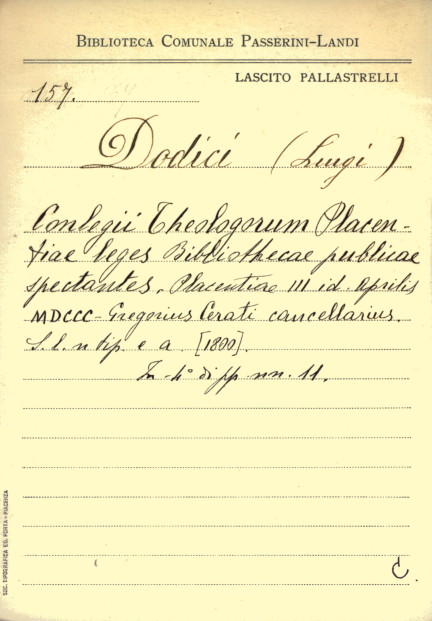 BIBLIOTECA COMUNALE PASSERINI-LANDI
LASCITO PALLASTRELLI
157.
Dodici (Luigi)
Conlegii Theologorum Placen-
tiae leges Bibliothecae publicae
spectantes. Placentiae III id. Aprilis
MDCCC - Gregorius Cerati cancellarius.
S. l. n tip. e a. [1800].
In-4° di pp nn. 11.
C
SOC. TIPOGRAFICA ED. PORTA-PIACENZA